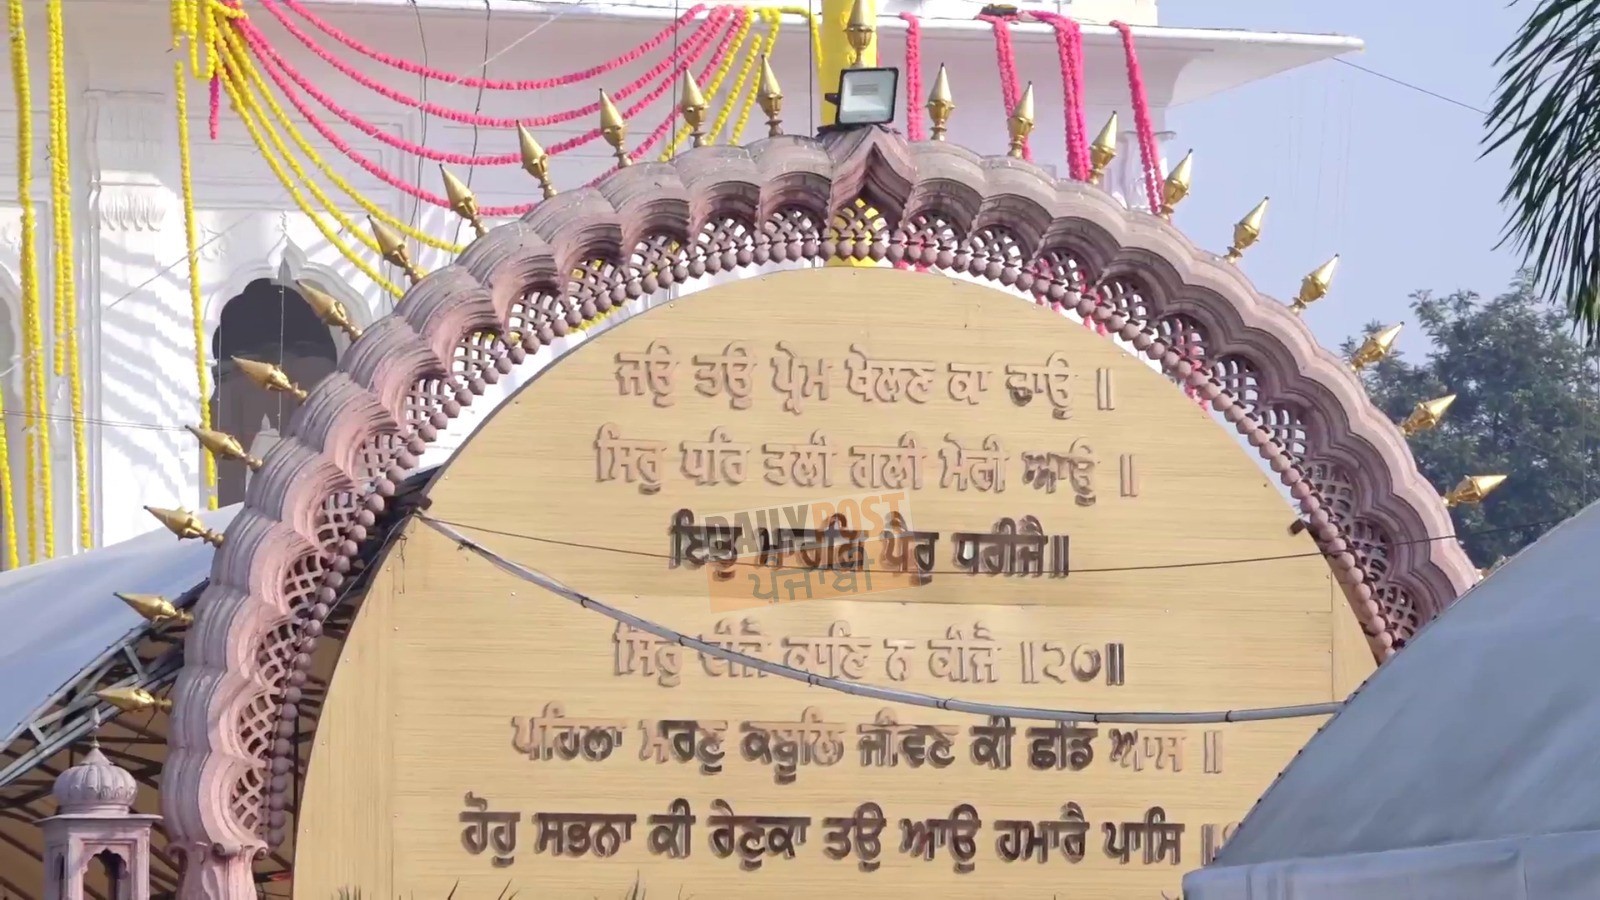 ਜਉ ਤਉ ਪ੍ਰੇਮ ਖੇਲਣ ਕਾ ਚਾਉ ॥
ਸਿਰੁ ਧਰਿ ਤਲੀ ਗਲੀ ਮੇਰੀ ਆਉ ॥
ਇਤੁ ਮਾਰਗਿ ਪੈਰੁ ਧਰੀਜੈ॥
DAILY POST
ਪੰਜਾਬੀ
ਸਿਰੁ ਦੀਜੈ ਕਾਣਿ ਨ ਕੀਜੈ ॥੨੦॥
ਪਹਿਲਾ ਮਰਣੁ ਕਬੂਲਿ ਜੀਵਣ ਕੀ ਛਡਿ ਆਸ ॥
ਹੋਹੁ ਸਭਨਾ ਕੀ ਰੇਣੁਕਾ ਤਉ ਆਉ ਹਮਾਰੈ ਪਾਸਿ ॥